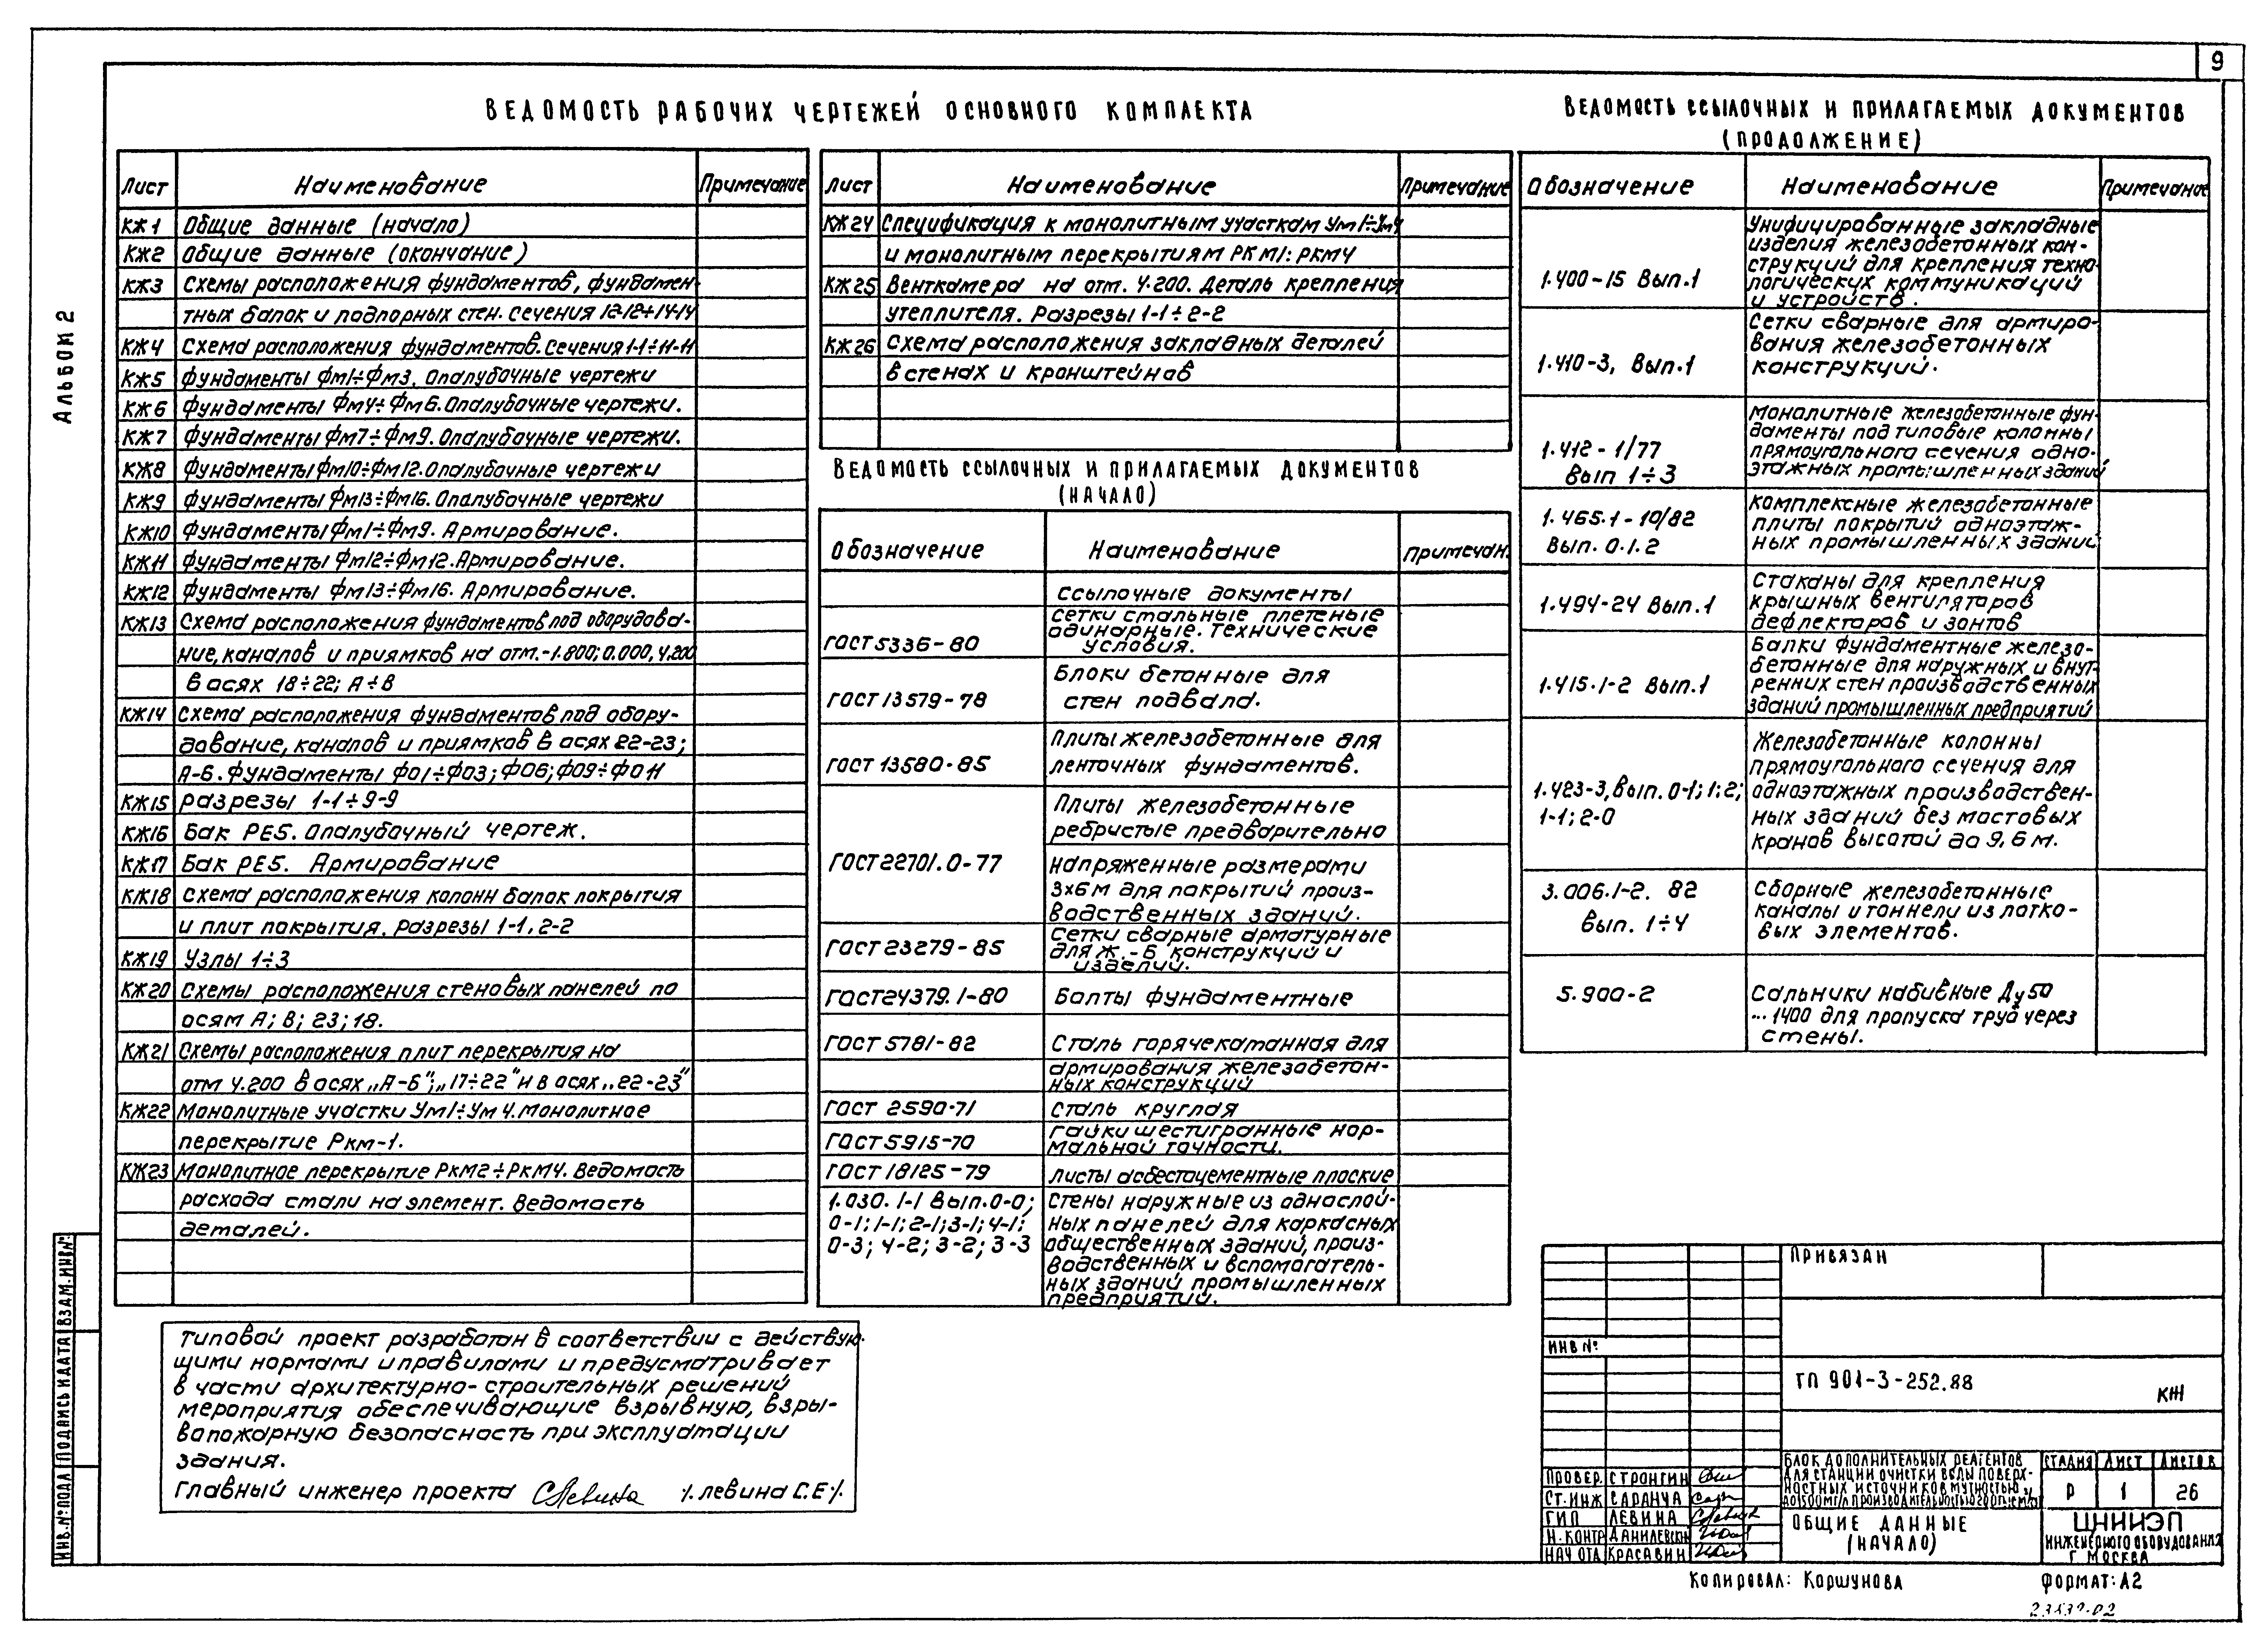 9
Альбом 2
Ведомость рабочих чертежей основного комплекта
Лист Наименование Примечание
КЖ1 Общие данные (начало)
КЖ2 Общие данные (окончание)
КЖ3 Схемы расположения фундаментов, фундамен-
тных балок и подпорных стен. Сечения 12-12÷14-14
КЖ4 Схема расположения фундаментов. Сечения 1-1÷11-11
КЖ5 Фундаменты Фм1÷Фм3. Опалубочные чертежи
КЖ6 Фундаменты Фм4÷Фм6. Опалубочные чертежи.
КЖ7 Фундаменты Фм7÷Фм9. Опалубочные чертежи.
КЖ8 Фундаменты Фм10÷Фм12. Опалубочные чертежи
КЖ9 Фундаменты Фм13÷Фм16. Опалубочные чертежи
КЖ10 Фундаменты Фм1÷Фм9. Армирование.
КЖ11 Фундаменты Фм12÷Фм12. Армирование.
КЖ12 Фундаменты Фм13÷Фм16. Армирование.
КЖ13 Схема расположения фундаментов под оборудова-
ние, каналов и приямков на отм. -1.800; 0.000, 4.200
в осях 18÷22; А÷В
КЖ14 Схема расположения фундаментов под обору-
дование, каналов и приямков в осях 22-23;
А-Б. Фундаменты Ф01÷Ф03; Ф06; Ф09÷Ф011
КЖ15 Разрезы 1-1÷9-9
КЖ16 Бак РЕ5. Опалубочный чертеж.
КЖ17 Бак РЕ5. Армирование
КЖ18 Схема расположения колонн балок покрытия
и плит покрытия. Разрезы 1-1, 2-2
КЖ19 Узлы 1÷3
КЖ20 Схемы расположения стеновых панелей по
осям А; В; 23; 18.
КЖ21 Схемы расположения плит перекрытия на
отм 4.200 в осях „А-Б"; „17÷22" и в осях „22-23"
КЖ22 Монолитные участки Ум1÷Ум4. Монолитное
перекрытие Ркм-1.
КЖ23 Монолитное перекрытие Ркм2÷Ркм4. Ведомость
расхода стали на элемент. Ведомость
деталей.
Лист Наименование Примечание
КЖ24 Спецификация к монолитным участкам Ум1÷Ум4
и монолитным перекрытиям РКМ1: РКМ4
КЖ25 Венткамера на отм. 4.200. Деталь крепления
утеплителя. Разрезы 1-1÷2-2
КЖ26 Схема расположения закладных деталей
в стенах и кронштейнов
Ведомость ссылочных и прилагаемых документов
(начало)
Обозначение Наименование Примечан.
Ссылочные документы
ГОСТ 5336-80 Сетки стальные плетеные
одинарные. Технические
условия.
ГОСТ 13579-78 Блоки бетонные для
стен подвала.
ГОСТ 13580-85 Плиты железобетонные для
ленточных фундаментов.
ГОСТ 22701.0-77 Плиты железобетонные
ребристые предварительно
напряженные размерами
3х6м для покрытий произ-
водственных зданий.
ГОСТ 23279-85 Сетки сварные арматурные
для ж.-б конструкций и
изделий.
ГОСТ 24379.1-80 Болты фундаментные
ГОСТ 5781-82 Сталь горячекатанная для
армирования железобетон-
ных конструкций
ГОСТ 2590-71 Сталь круглая
ГОСТ 5915-70 Гайки шестигранные нор-
мальной точности.
ГОСТ 18125-79 Листы асбестоцементные плоские
1.030.1-1 Вып.0-0; Стены наружные из однослой-
0-1; 1-1; 2-1; 3-1; 4-1; ных панелей для каркасных
0-3; 4-2; 3-2; 3-3 общественных зданий, произ-
водственных и вспомогатель-
ных зданий промышленных
предприятий.
Ведомость ссылочных и прилагаемых документов
(продолжение)
Обозначение Наименование Примечание
1.400-15 Вып.1 Унифицированные закладные
изделия железобетонных кон-
струкций для крепления техно-
логических коммуникаций
и устройств.
1.410-3, Вып.1 Сетки сварные для армиро-
вания железобетонных
конструкций.
1.412-1/77 Монолитные железобетонные фун-
даменты под типовые колонны
Вып 1÷3 прямоугольного сечения одно-
этажных промышленных зданий
1.465.1-10/82 Комплексные железобетонные
плиты покрытий одноэтаж-
Вып. 0.1.2 ных промышленных зданий
1.494-24 Вып.1 Стаканы для крепления
крышных вентиляторов
дефлекторов и зонтов
1.415.1-2 Вып.1 Балки фундаментные железо-
бетонные для наружных и внут-
ренних стен производственных
зданий промышленных предприятий
1.423-3, Вып. 0-1; 1; 2; Железобетонные колонны
1-1; 2-0 прямоугольного сечения для
одноэтажных производствен-
ных зданий без мостовых
кранов высотой до 9,6 м.
3.006.1-2. 82 Сборные железобетонные
Вып. 1÷4 каналы и тоннели из лотко-
вых элементов.
5.900-2 Сальники набивные Ду50
...1400 для пропуска труб через
стены.
Типовой проект разработан в соответствии с действую-
щими нормами и правилами и предусматривает
в части архитектурно-строительных решений
мероприятия обеспечивающие взрывную, взры-
вопожарную безопасность при эксплуатации
здания.
Главный инженер проекта /Левина С.Е./
Привязан
Инв №
ТП 901-3-252.88 КЖ
Провер. Стронгин
Ст.инж Саранча
ГИП Левина
Н.контр Данилевски
Нач ота Красавин
Блок дополнительных реагентов
для станции очистки воды поверх-
ностных источников мутностью
Стадия Лист Листов
Р 1 26
Общие данные
(начало)
ЦНИИЭП
инженерного оборудования
г. Москва
Копировал: Коршунова Формат: А2
Инв.№ подл Подпись и дата Взам.инв№